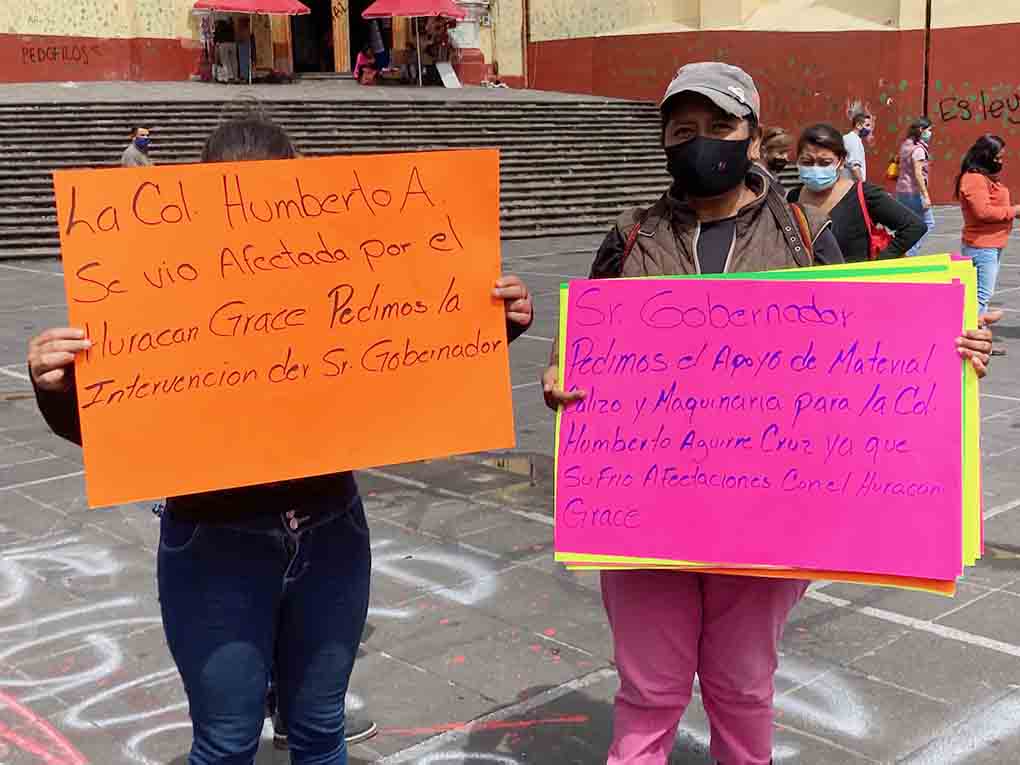 PEDOFILOS
Es ley
La Col. Humberto A.
Se vio Afectada por el
Huracan Grace Pedimos la
Intervencion der Sr. Gobernador
Sr. Gobernador
Pedimos el Apoyo de Material
Calizo y Maquinaria para la Col.
Humberto Aguirre Cruz ya que
Sufrio Afectaciones Con el Huracan
Grace